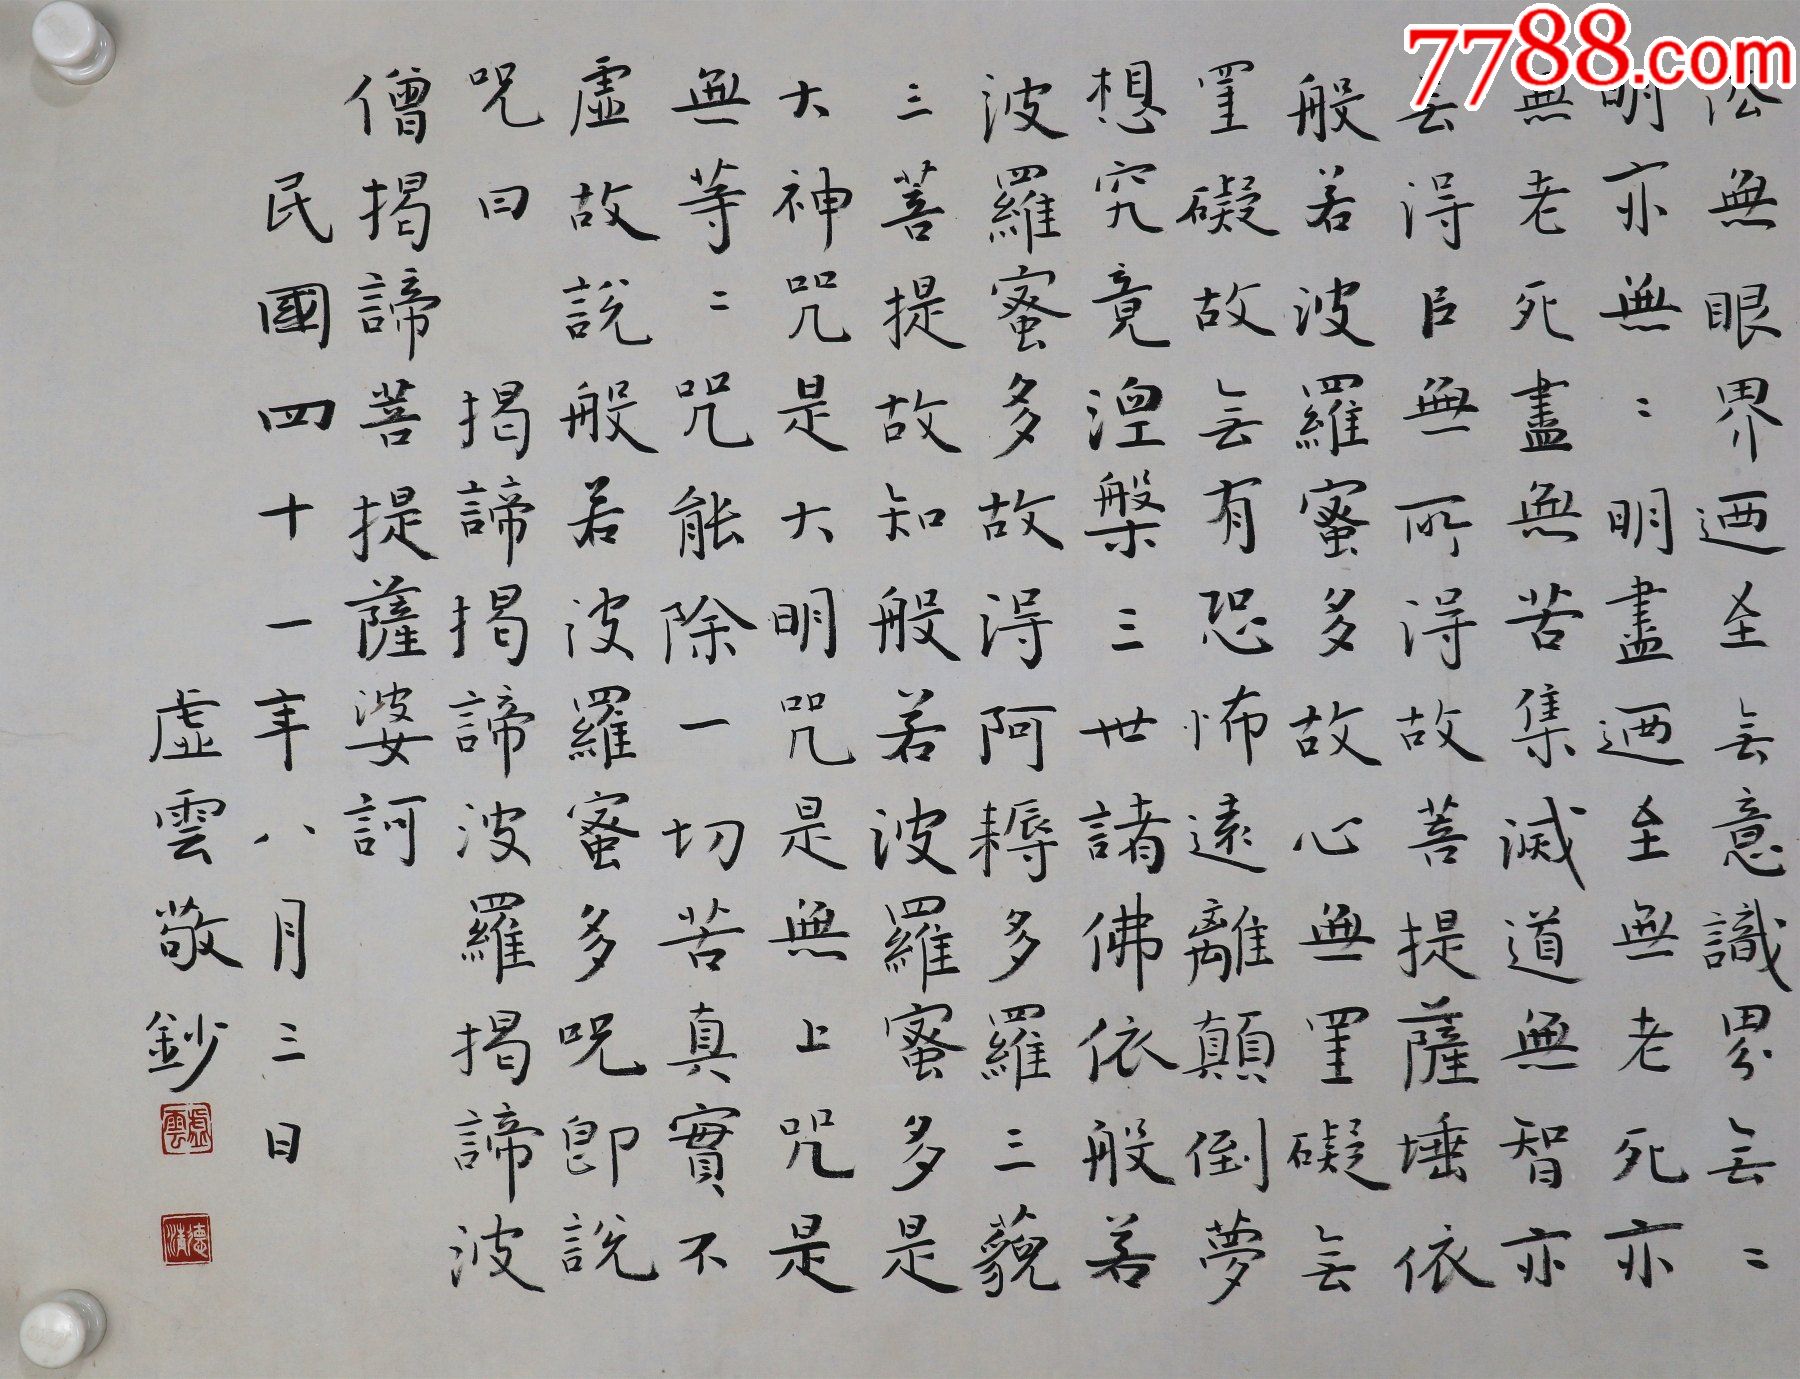 7788.com
法無眼界迺至无意識界无〻
明亦無〻明盡迺至無老死亦
無老死盡無苦集滅道無智亦
无得㠯無所得故菩提薩埵依
般若波羅蜜多故心無罣礙无
罣礙故无有恐怖遠離顛倒夢
想究竟涅槃三世諸佛依般若
波羅蜜多故得阿耨多羅三藐
三菩提故知般若波羅蜜多是
大神咒是大明咒是無上咒是
無等〻咒能除一切苦真實不
虛故說般若波羅蜜多呪即說
呪曰 揭諦揭諦波羅揭諦波
僧揭諦菩提薩婆訶
民國四十一年八月三日
虛雲敬鈔
虛雲
德清